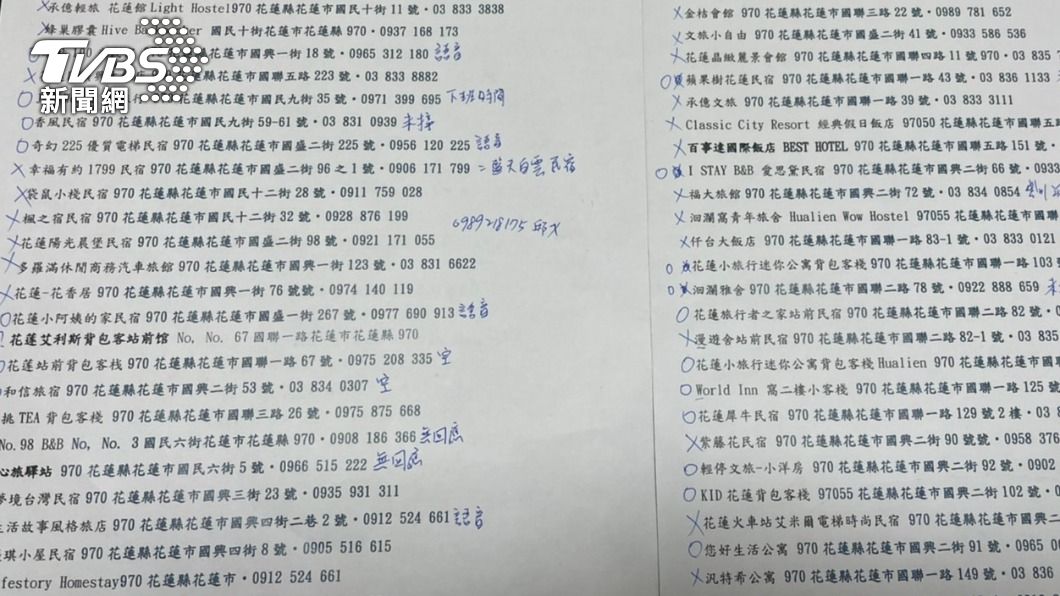 TVBS
新聞網
X承億輕旅 花蓮館 Light Hostel970 花蓮縣花蓮市國民十街 11 號·03 833 3838
X蜂巢膠囊 Hive Ba 國民十街花蓮市花蓮縣 970·0937 168 173
花蓮縣花蓮市國興一街 18 號·0965 312 180 語音
X 花蓮縣花蓮市國聯五路 223 號·03 833 8882
O 花蓮縣花蓮市國民九街 35 號·0971 399 695 下班時間
O香風民宿 970 花蓮縣花蓮市國民九街 59-61 號·03 831 0939 未接
O奇幻 225 優質電梯民宿 970 花蓮縣花蓮市國盛二街 225 號·0956 120 225 語音
X幸福有約 1799 民宿 970 花蓮縣花蓮市國盛二街 96 之 1 號·0906 171 799 =藍天白雲民宿
X袋鼠小棧民宿 970 花蓮縣花蓮市國民十二街 28 號·0911 759 028
X楓之宿民宿 970 花蓮縣花蓮市國民十二街 32 號·0928 876 199
0989218175 邱X
X花蓮陽光晨堡民宿 970 花蓮縣花蓮市國盛二街 98 號·0921 171 055
X多羅滿休閒商務汽車旅館 970 花蓮縣花蓮市國興一街 123 號·03 831 6622
X花蓮-花香居 970 花蓮縣花蓮市國興一街 76 號號·0974 140 119
O花蓮小阿姨的家民宿 970 花蓮縣花蓮市國盛一街 267 號·0977 690 913 語音
花莲艾利斯背包客站前馆 No, No. 67 國聯一路花蓮市花蓮縣 970
O花莲站前背包客栈 970 花蓮縣花蓮市國聯一路 67 號·0975 208 335 空
和信旅宿 970 花蓮縣花蓮市國興二街 53 號·03 834 0307 空
挑 TEA 背包客棧 970 花蓮縣花蓮市國聯三路 26 號·0975 875 668
No.98 B&B No, No. 3 國民六街花蓮市花蓮縣 970·0908 186 366 無回應
心旅驛站 970 花蓮縣花蓮市國民六街 5 號·0966 515 222 無回應
夢境台灣民宿 970 花蓮縣花蓮市國興三街 23 號·0935 931 311
生活故事風格旅店 970 花蓮縣花蓮市國興四街二巷 2 號·0912 524 661 語音
琪小屋民宿 970 花蓮縣花蓮市國興四街 8 號·0905 516 615
festory Homestay970 花蓮縣花蓮市·0912 524 661
X金桔會館 970 花蓮縣花蓮市國聯三路 22 號·0989 781 652
X文旅小自由 970 花蓮縣花蓮市國盛二街 41 號·0933 586 536
X花蓮晶緻麗景會館 970 花蓮縣花蓮市國聯四路 11 號 970·03 835
O蘋果樹花蓮民宿 970 花蓮縣花蓮市國聯一路 43 號·03 836 1133
X承億文旅 970 花蓮縣花蓮市國聯一路 39 號·03 833 3111
X Classic City Resort 經典假日飯店 97050 花蓮縣花蓮市國聯五
X百事達國際飯店 BEST HOTEL 970 花蓮縣花蓮市國聯五路 151 號·
O I STAY B&B 愛思黛民宿 970 花蓮縣花蓮市國興二街 66 號·0933
X福大旅館 970 花蓮縣花蓮市國興二街 72 號·03 834 0854
X洄瀾窩青年旅舍 Hualien Wow Hostel 97055 花蓮縣花蓮市國聯
X仟台大飯店 970 花蓮縣花蓮市國聯一路 83-1 號·03 833 0121
O X花蓮小旅行迷你公寓背包客棧 970 花蓮縣花蓮市國聯一路 103
O X洄瀾雅舍 970 花蓮縣花蓮市國聯二路 78 號·0922 888 659
O花蓮旅行者之家站前民宿 970 花蓮縣花蓮市國聯二路 82 號·
X漫遊舍站前民宿 970 花蓮縣花蓮市國聯二路 82-1 號·03 835
O花蓮小旅行迷你公寓背包客棧 Hualien 970 花蓮縣花蓮市國聯
O World Inn 窩二樓小客棧 970 花蓮縣花蓮市國聯一路 125 號
O花蓮犀牛民宿 970 花蓮縣花蓮市國聯一路 129 號 2 樓·03 8
X紫藤花民宿 970 花蓮縣花蓮市國興二街 90 號號·0958 376
O輕停文旅-小洋房 970 花蓮縣花蓮市國興二街 92 號·0902
O KID 花蓮背包客棧 97055 花蓮縣花蓮市國興二街 102 號·0
X花蓮火車站艾米爾電梯時尚民宿 970 花蓮縣花蓮市國興二
O您好生活公寓 970 花蓮縣花蓮市國興二街 91 號·0965 0
X汎特希公寓 970 花蓮縣花蓮市國聯一路 149 號·03 836